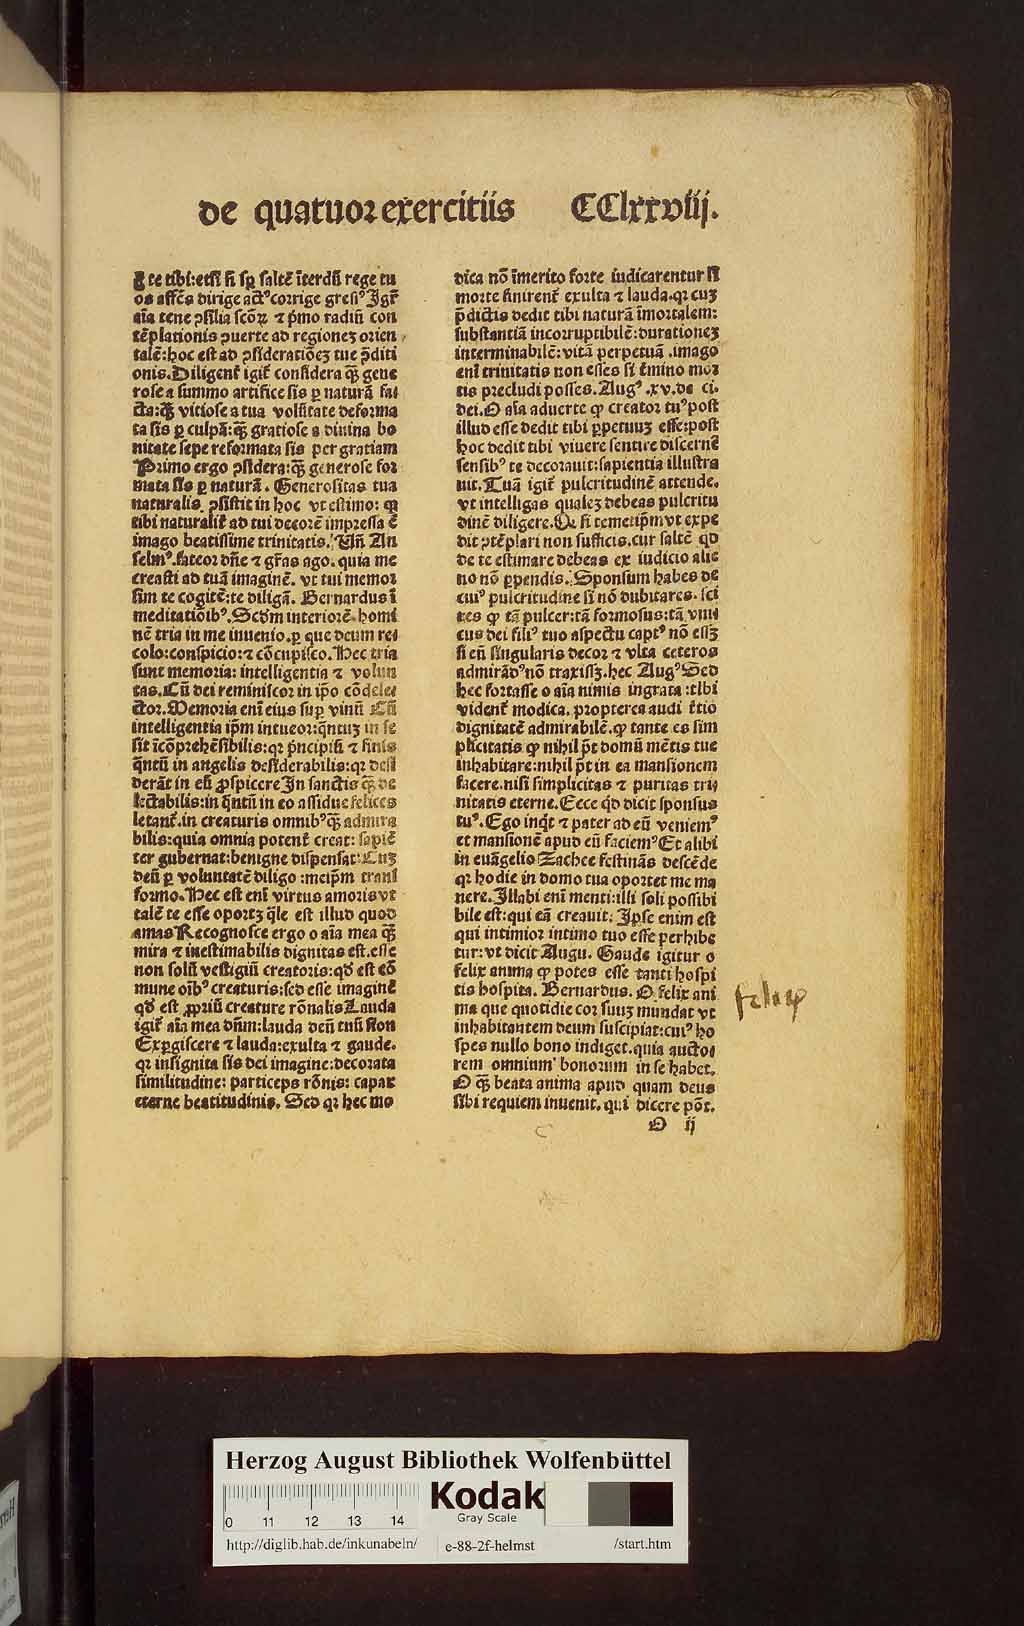 de quatuor exercitiis CClxxviij.
te tibi:etsi ñ sꝑ saltē īterdū rege tu
os affēs dirige actꝰ corrige gresꝰ Igr̄
aīa tene ↄsilia scōꝝ ⁊ p̄mo radiū con
tēplationis ↄuerte ad regioneʒ orien
talē:hoc est ad ↄsideratiōeʒ tue ↄditi
onis.Diligent̄ igit̄ considera qͣʒ gene
rose a summo artifice sis ꝑ naturā fa
cta:qͣʒ vitiose a tua volūtate deforma
ta sis ꝑ culpā:qͣʒ gratiose a diuina bo
nitate sepe reformata sis per gratiam
Primo ergo ↄsidera:qͣʒ generose for
mata sis ꝑ naturā. Generositas tua
naturalis ↄsistit in hoc vt estimo: ꝙ
tibi naturalit̄ ad tui decorē impressa ē
imago beatissime trinitatis. Vn̄ An
selmꝰ.fateor dn̄e ⁊ gr̄as ago. quia me
creasti ad tuā imaginē. vt tui memor
sim te cogitē:te diligā. Bernardus ī
meditatiōibꝰ.Scd̄m interiorē homi
nē tria in me inuenio.ꝑ que deum re
colo:conspicio:⁊ cōcupisco.Hec tria
sunt memoria: intelligentia ⁊ volun
tas.Cū dei reminiscor in ip̄o cōdele
ctor.Memoria enī eius suꝑ vinū Cū
intelligentia ip̄m intueor:qͣntuʒ in se
sit īcōprehēsibilis:qꝛ pͥncipiū ⁊ finis
qͣntū in angelis desiderabilis:qꝛ desi
derāt in eū ꝓspicere In sanctis qͣʒ de
lectabilis:in qͣntū in eo assidue felices
letant̄.in creaturis omnibꝰ qͣʒ admira
bilis:quia omnia potent̄ creat: sapiē
ter gubernat:benigne dispensat:Cuʒ
deū ꝑ voluntatē diligo :meip̄m trans
formo.Hec est enī virtus amoris vt
talē te esse oportʒ qͣle est illud quod
amas Recognosce ergo o aīa mea qͣʒ
mira ⁊ inestimabilis dignitas est.esse
non solū vestigiū creatoris:qd̄ est cō
mune oībꝰ creaturis:sed esse imaginē
qd̄ est ꝓpriū creature rōnalis Lauda
igit̄ aīa mea dn̄m:lauda deū tuū sion
Exꝑgiscere ⁊ lauda:exulta ⁊ gaude.
qꝛ insignita sis dei imagine:decorata
similitudine: particeps rōnis: capax
eterne beatitudinis. Sed qꝛ hec mo
dica nō īmerito forte iudicarentur si
morte finirent̄ exulta ⁊ lauda.qꝛ cuʒ
p̄dictis dedit tibi naturā īmortalem:
substantiā incorruptibilē:durationeʒ
interminabilē:vitā perpetuā .imago
enī trinitatis non esses si t̄mino mor
tis precludi posses.Augꝰ .xv.de ci.
dei.O aīa aduerte ꝙ creator tuꝰ post
illud esse dedit tibi ꝑpetuuʒ esse:post
hoc dedit tibi viuere sentire discernē
sensibꝰ te decorauit:sapientia illustra
uit.Tuā igit̄ pulcritudinē attende.
vt intelligas qualeʒ debeas pulcritu
dinē diligere.Qꝛ si temetip̄m vt expe
dit ↄtēplari non sufficis.cur saltē qd̄
de te estimare debeas ex iudicio alie
no nō ꝑpendis. Sponsum habes de
cuiꝰ pulcritudine si nō dubitares. sci
res ꝙ tā pulcer:tā formosus:tā vni
cus dei filiꝰ tuo aspectu captꝰ nō essʒ
si eū singularis decor ⁊ vltra ceteros
admirādꝰ nō traxissʒ.hec Augꝰ Sed
hec fortasse o aīa nimis ingrata :tibi
vident̄ modica. propterea audi t̄tio
dignitatē admirabilē.ꝙ tante es sim
plicitatis ꝙ nihil p̄t domū mētis tue
inhabitare:nihil p̄t in ea mansionem
facere.nisi simplicitas ⁊ puritas tri
nitatis eterne.Ecce qd̄ dicit sponsus
tuꝰ.Ego inqͥt ⁊ pater ad eū veniemꝰ
et mansionē apud eū faciemꝰ Et alibi
in euāgelio Zachee festinās descēde
qꝛ hodie in domo tua oportet me ma
nere.Illabi enī menti:illi soli possibi
bile est:qui eā creauit. Ipse enim est
qui intimior intimo tuo esse perhibe
tur:vt dicit Augu. Gaude igitur o
felix anima ꝙ potes esse tanti hospi
tis hospita. Bernardus. O felix ani
ma que quotidie cor suuʒ mundat vt
inhabitantem deum suscipiat:cuiꝰ ho
spes nullo bono indiget.quia aucto
rem omnium bonorum in se habet.
O qͣʒ beata anima apud quam deus
sibi requiem inuenit. qui dicere pōt.
O ij
Herzog August Bibliothek Wolfenbüttel
Kodak
Gray Scale
0 11 12 13 14
http://diglib.hab.de/inkunabeln/ e-88-2f-helmst /start.htm